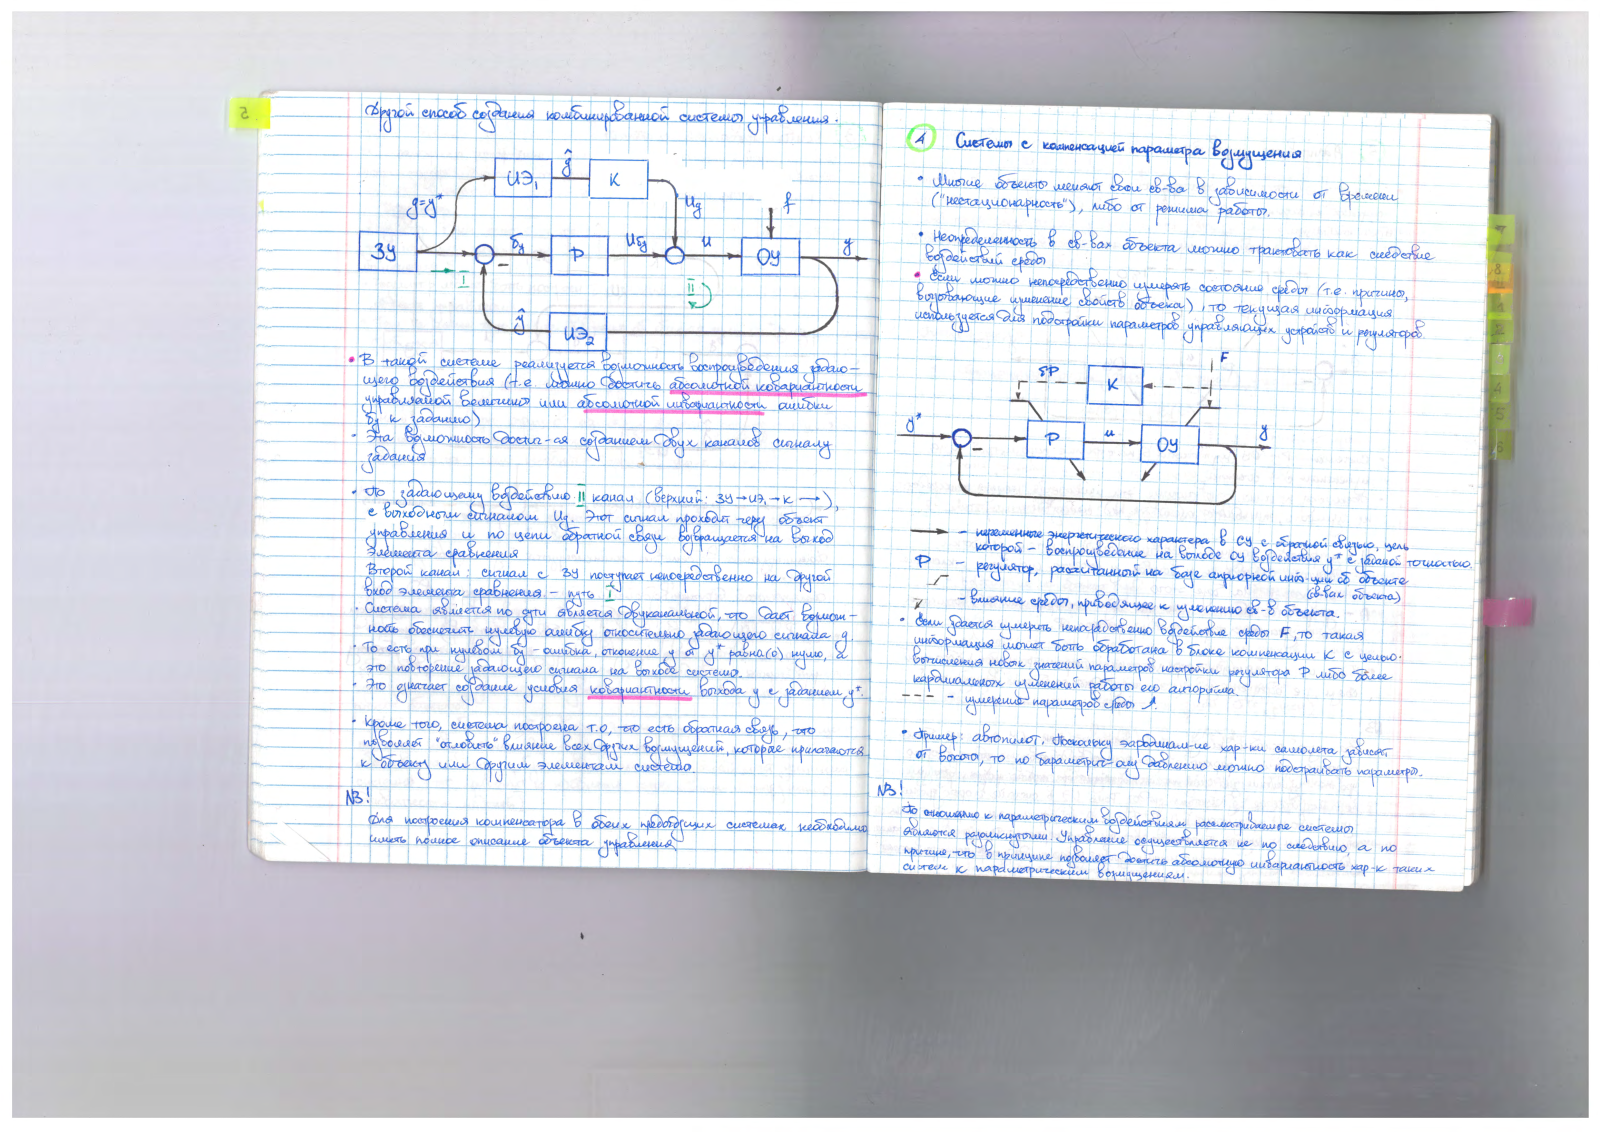 2
Другой способ создания комбинированной системы управления.
ĝ
ИЭ₁
К
g=y*
u_g
f
ЗУ
δy
Р
u_δy
u
ОУ
y
–
I
II
ŷ
ИЭ₂
• В такой системе реализуется возможность воспроизведения задаю-
щего воздействия (т.е. можно достичь абсолютной ковариантности
управляемой величины или абсолютной инвариантности ошибки
δy к заданию)
• Эта возможность достиг-ся созданием двух каналов сигналу
задания
• По задающему воздействию II канал (верхний: ЗУ→ИЭ₁→К→),
с выходным сигналом Ug. Этот сигнал проходит через объект
управления и по цепи обратной связи возвращается на выход
элемента сравнения
Второй канал: сигнал с ЗУ поступает непосредственно на другой
вход элемента сравнения – путь I
• Система является по сути является двухканальной, что дает возмож-
ность обеспечить нулевую ошибку относительно задающего сигнала g
• То есть при нулевом δy – ошибка, отклонение y от y* равна(о) нулю, а
это повторение задающего сигнала на выходе системы.
• Это означает создание условия ковариантности выхода y с заданием y*.
• Кроме того, система построена т.о, что есть обратная связь, что
позволяет "отловить" влияние всех других возмущений, которые прилагаются
к объекту или другим элементам системы.
NB!
Для построения компенсатора в обеих предыдущих системах необходимо
иметь полное описание объекта управления
4
Системы с компенсацией параметра возмущения
• Многие объекты меняют свои св-ва в зависимости от времени
("нестационарность"), либо от режима работы.
• Неопределенность в св-вах объекта можно трактовать как следствие
воздействий среды
• Если можно непосредственно измерять состояние среды (т.е. причины,
вызывающие изменение свойств объекта), то текущая информация
используется для подстройки параметров управляющих устройств и регуляторов
F
δP
К
y*
Р
u
ОУ
y
–
→ – переменные энергетического характера в СУ с обратной связью, цель
которой – воспроизведение на выходе ОУ воздействия y* с заданной точностью.
Р – регулятор, рассчитанный на базе априорной инф-ции об объекте
(св-вах объекта)
– влияние среды, приводящее к изменению св-в объекта.
• Если удается измерить непосредственно воздействие среды F, то такая
информация может быть обработана в блоке компенсации К с целью
вычисления новых значений параметров настройки регулятора Р либо более
кардинальных изменений работы его алгоритма.
--- – измерение параметров среды
• Пример: автопилот. Поскольку аэродинам-ие хар-ки самолета зависят
от высоты, то по барометрич-ому давлению можно подстраивать параметры.
NB!
По отношению к параметрическим воздействиям рассматриваемые системы
являются разомкнутыми. Управление осуществляется не по следствию, а по
причине, что в принципе позволяет достичь абсолютную инвариантность хар-к таких
систем к параметрическим возмущениям.